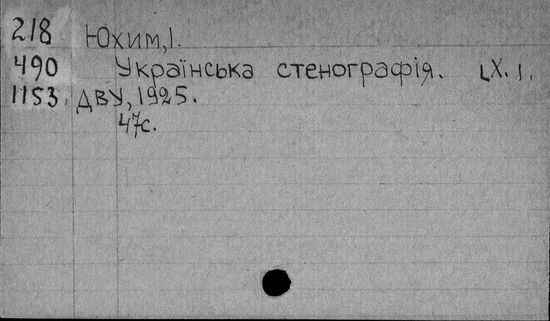 218 Юхим, І.
490 Українська стенографія. [Х.],
1153. ДВУ, 1925.
47с.